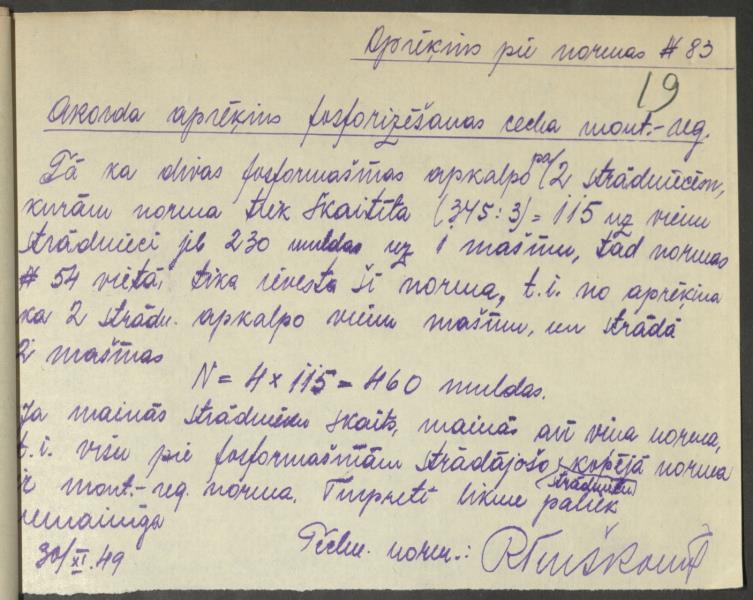 Aprēķins pie normas # 83
19
Akorda aprēķins fosforizēšanas cecha mont.-reg.
Tā ka divas fosformašīnas apkalpo pa/2 strādniecēm,
kurām norma tiek skaitīta (345:3) = 115 uz vienu
strādnieci jeb 230 muldas uz 1 mašīnu, tad normas
# 54 vietā, tika ievesta šī norma, t.i. no aprēķina
ka 2 strādn. apkalpo vienu mašīnu, un strādā
2 mašīnas
N = 4 x 115 = 460 muldas.
Ja mainās strādnieku skaits, mainās arī viņa norma,
t.i. visu pie fosformašīnām strādājošo kopējā norma
strādnieku
ir mont.-reg. norma. Turpretī likme paliek
nemainīga
30/XI.49
Techn. norm.: